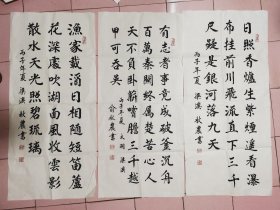 日照香爐生紫煙遙看瀑
布挂前川飛流直下三千
尺疑是銀河落九天
丙子年夏 梁溪 農書
有志者事竟成破釜沉舟
百萬秦關終屬楚苦心人
天不負卧薪嘗膽三千越
甲可吞吳
丙子年夏 太湖 梁溪
俞 農書
漁家載酒日相隨短笛蘆
花深處吹湖面風收雲影
散水天光照碧琉璃
丙子年夏 梁溪 農書